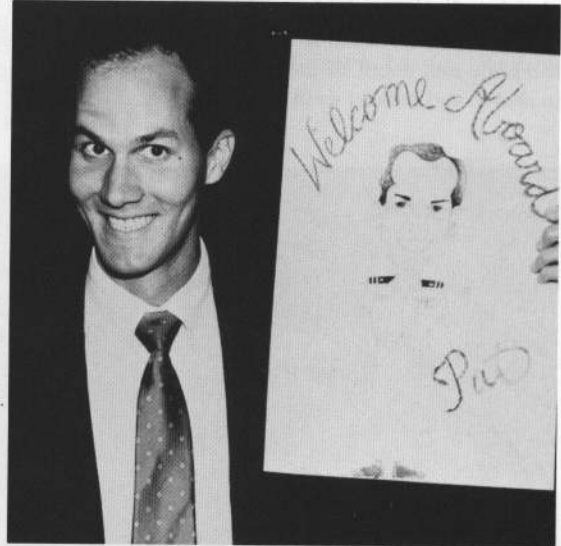 Welcome Aboard